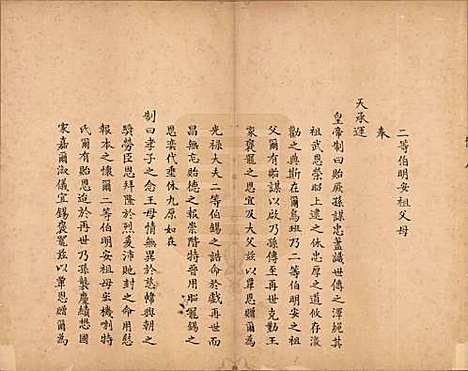 二等伯明安祖父母
奉
天承運
皇帝制曰貽厥孫謀忠藎識世傳之澤繩其
祖武恩榮昭上逮之休忠厚之道攸存激
勸之典斯在爾烏班乃二等伯明安之祖
父爾有貽謀以啟乃孫傳至再世克勤王
家褒寵之恩宜及大父茲以覃恩贈爾為
光祿大夫二等伯錫之誥命於戲再世而
昌無忘貽德之報崇階特晉用昭寵錫之
恩奕代垂休九原如在
制曰孝子之念王母情無異於慈幃興朝之
獎勞臣恩拜隆於烈爰沛貤封之命用慰
報本之懷爾二等伯明安祖母蟲機喇特
氏爾有貽恩迨於再世乃孫襲慶績懋國
家嘉爾淑儀宜錫褒寵茲以覃恩贈爾為